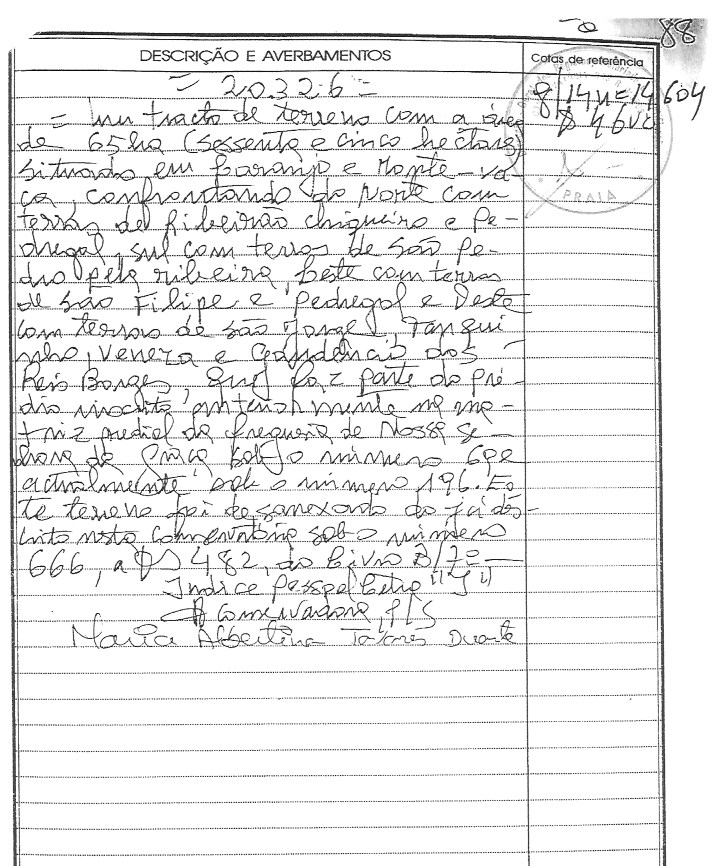 88
DESCRIÇÃO E AVERBAMENTOS
Cotas de referência
= 20326 =
= Um tracto de terreno com a área
de 65ha (sessenta e cinco hectares)
situado em Laranjo e Monte-va
ca, confrontando do Norte com
terras de Ribeirão chiqueiro e Pe-
dregal, sul com terras de São Pe-
dro pela ribeira, Leste com terras
de São Filipe e Pedregal e Oeste
com terras de São Jorge, Tanqui
nho, Venera e Gaudêncio dos
Reis Borges. Que faz parte do pré-
dio inscrito anteriormente na ma-
triz predial da freguesia de Nossa Se-
nhora da Graça sob o número 6 e
actualmente sob o número 196. Es
te terreno foi desanexado do já des-
crito nesta Conservatória sob o número
666, a 482, do Livro B/
Indice Pessoal Letra "J"
A Conservadora, P/S
Maria Albertina Tavares Duarte
8/14
PRAIA